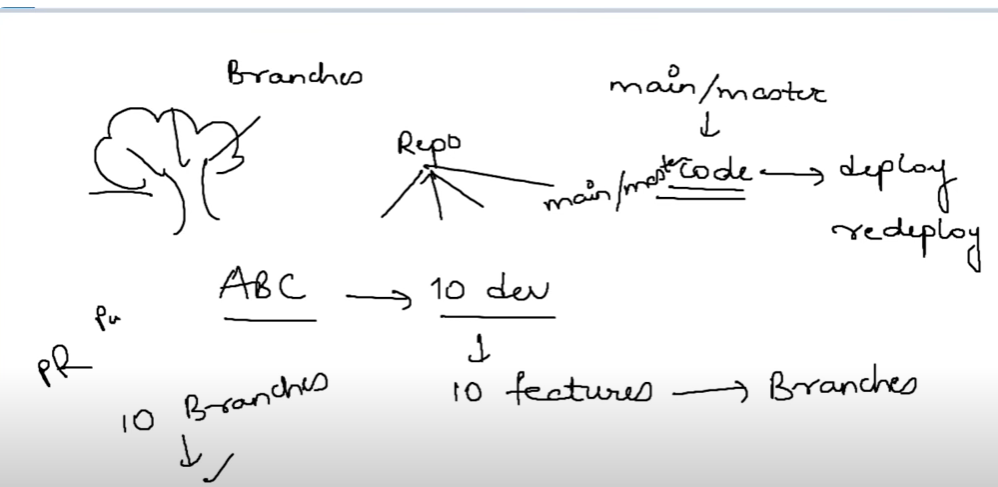 Branches
main/master
Repo
main/master code → deploy
redeploy
ABC → 10 dev
Pu
PR
10 features → Branches
10 Branches